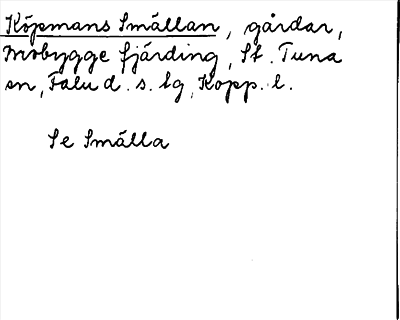 Köpmans Smällan, gårdar,
Mobygge fjärding, St. Tuna
sn, Falu d. s. lg, Kopp. l.
Se Smälla